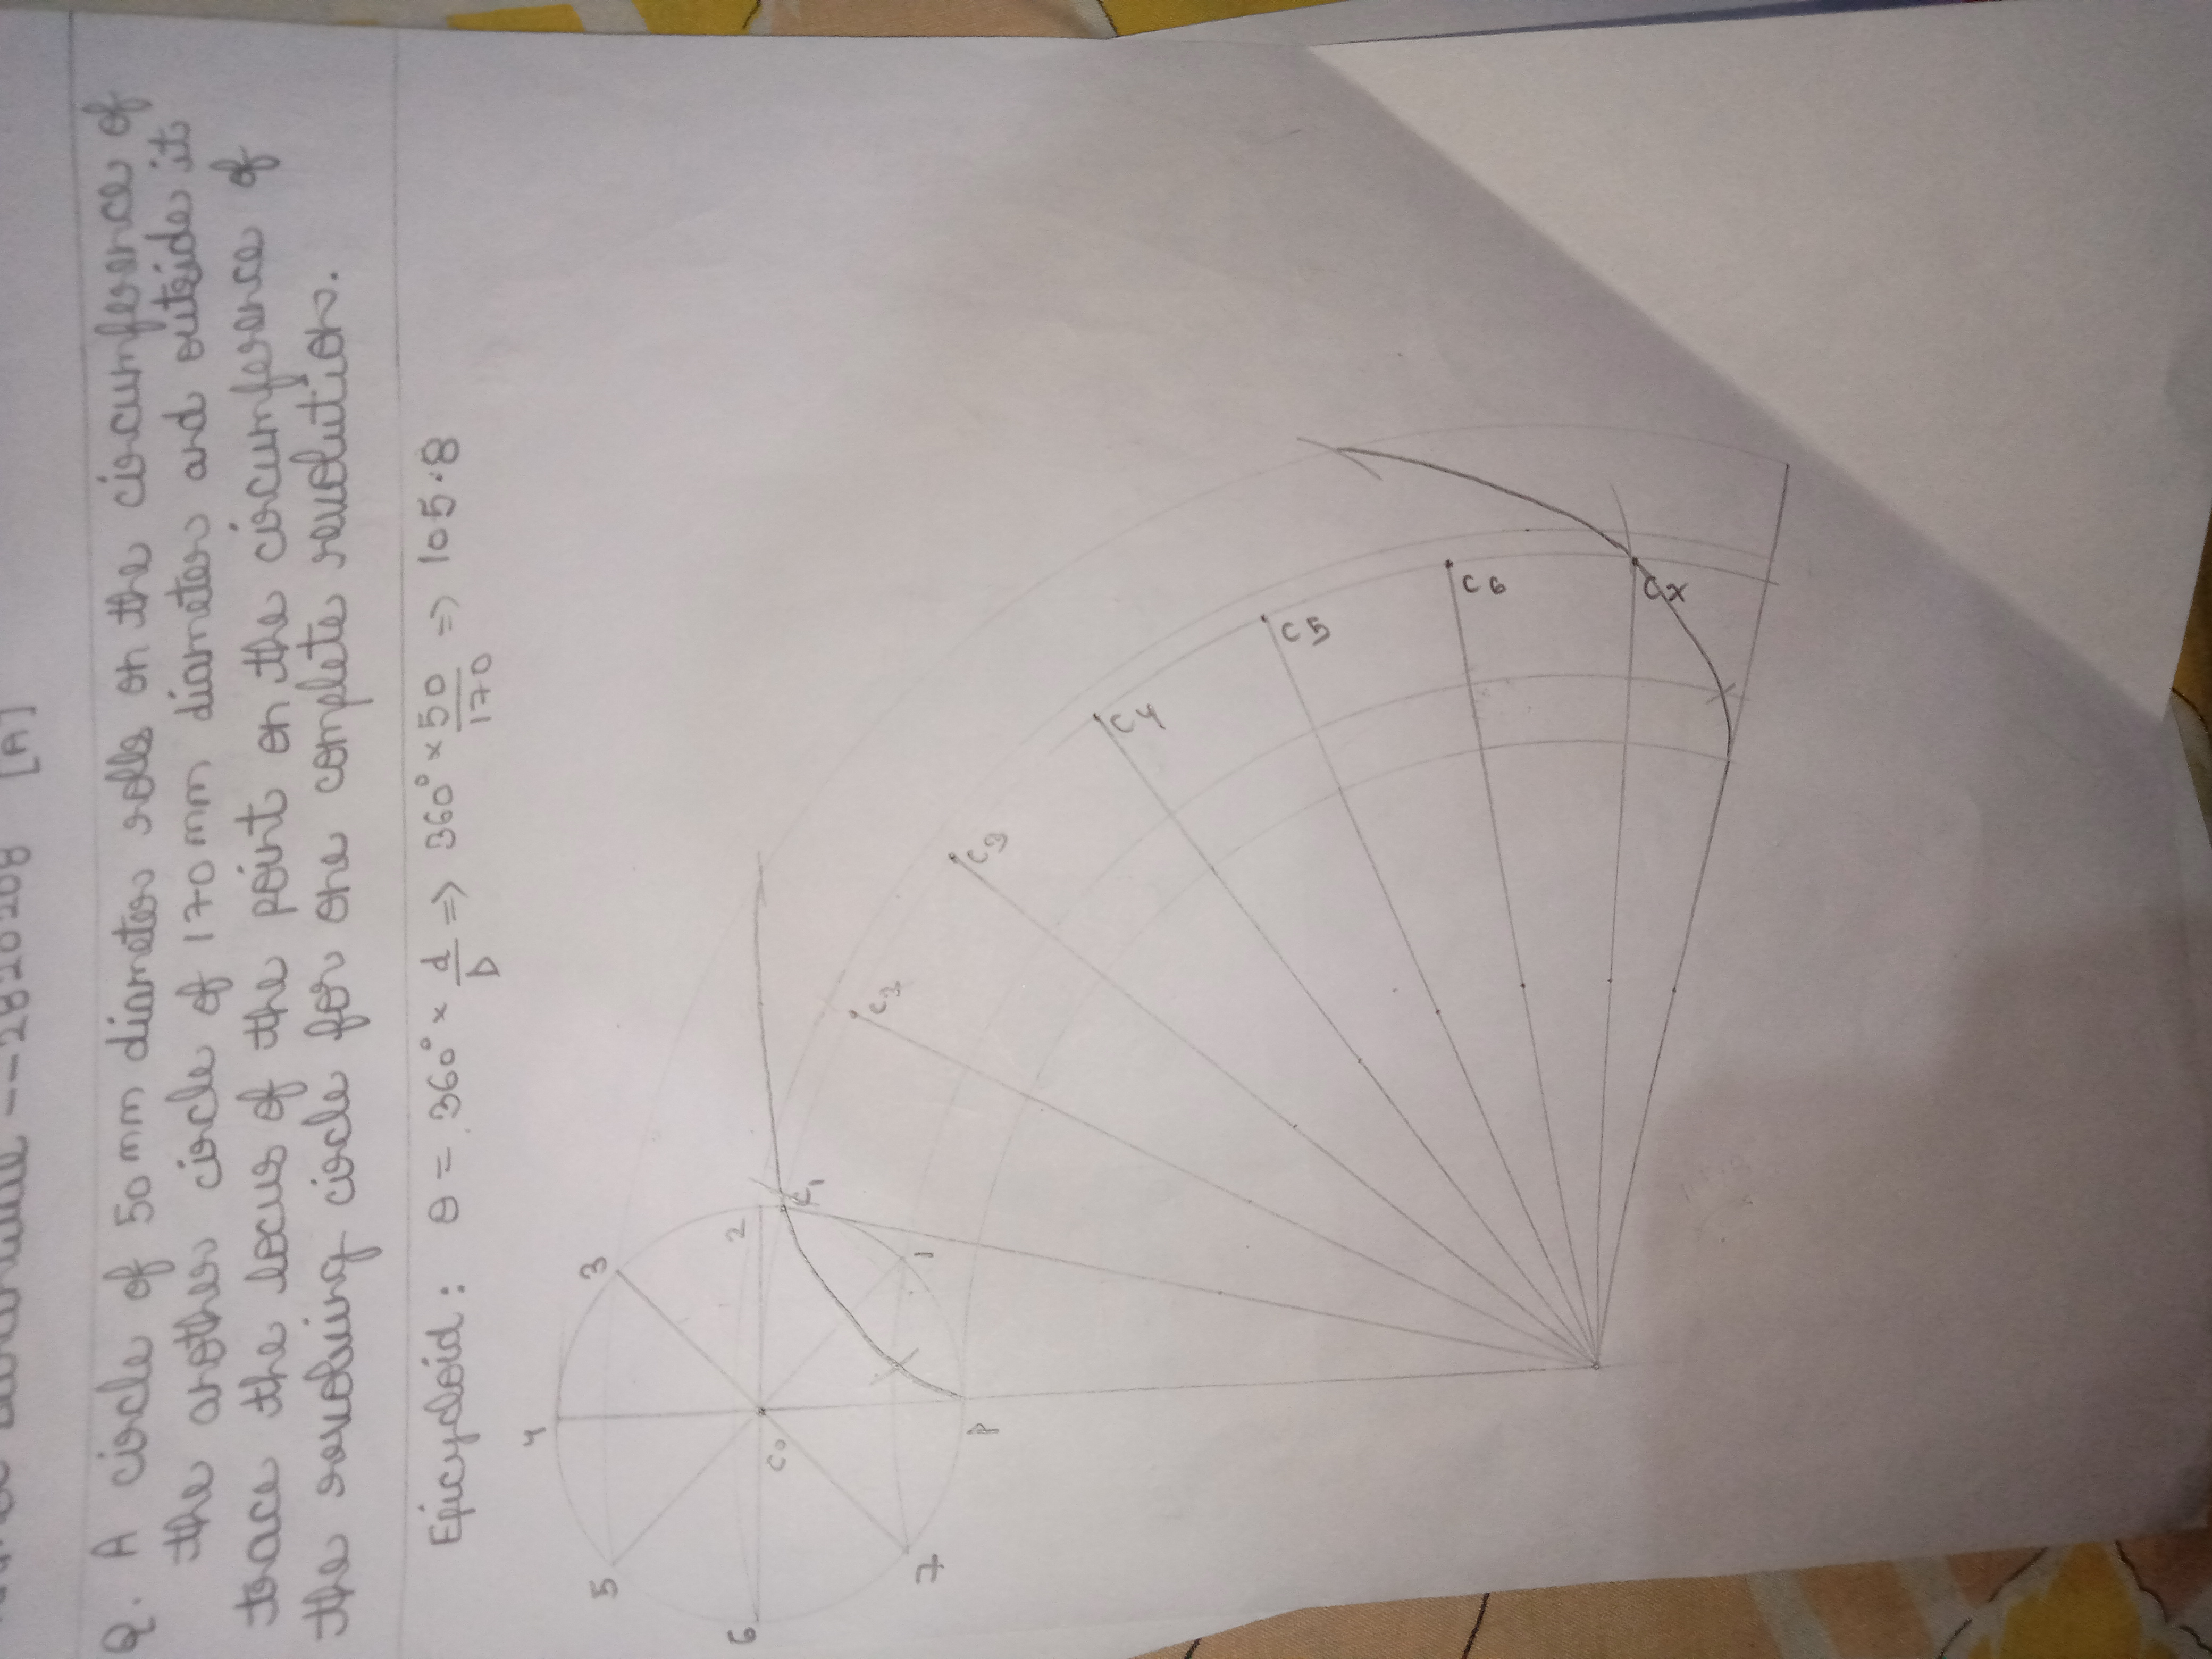 282028 [A]
Q. A circle of 50 mm diameter rolls on the circumference of
the another circle of 170 mm diameter and outside it
trace the locus of the point on the circumference of
the revolving circle for one complete revolution.
Epicycloid : θ = 360° × d/D => 360° × 50/170 => 105.8
3
4
5
6
7
P
1
2
C0
C1
C2
C3
C4
C5
C6
C7